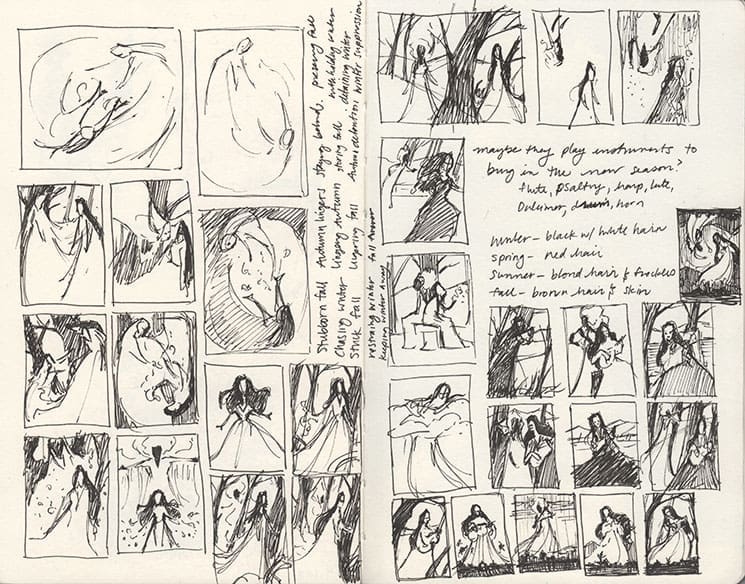 Stubborn fall Autumn lingers staying behind, preserving fall
Chasing winter lingering autumn storing fall withholding winter
Stuck fall lingering fall detaining winter
Autumn detention winter suppression
restraining winter fall forever
keeping winter away
maybe they play instruments to
bring in the new season?
flute, psaltry, harp, lute,
Dulcimer, drum, horn
winter - black w/ white hair
spring - red hair
summer - blond hair & freckles
fall - brown hair & skin